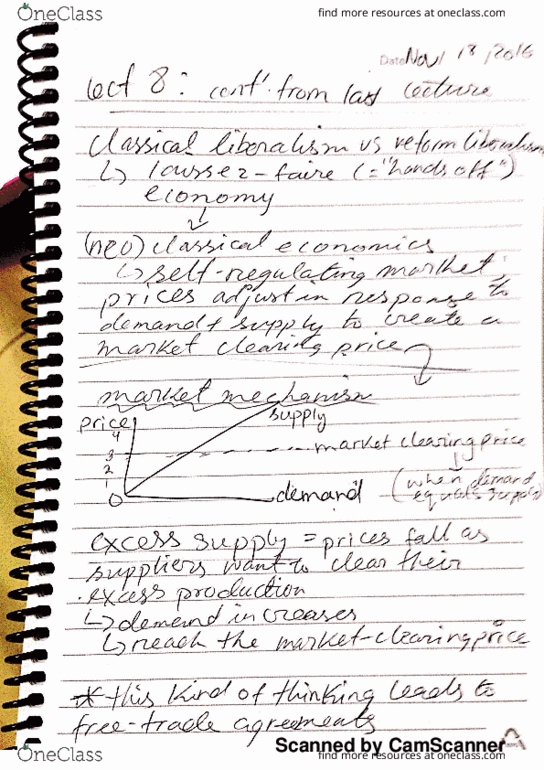 OneClass
find more resources at oneclass.com
Date Nov 18, 2016
Lect 8: cont' from last lecture
classical liberalism vs reform liberalism
↳ laussez-faire (="hands off")
economy
↓
(neo) classical economics
↳ self-regulating market,
prices adjust in response to
demand + supply to create a
market clearing price
market mechanism
price
supply
4
3
2
1
0
market clearing price
demand
(when demand
equals supply)
excess supply = prices fall as
suppliers want to clear their
excess production
↳ demand increases
↳ reach the market-clearing price
* this kind of thinking leads to
free-trade agreements
Scanned by CamScanner
OneClass
find more resources at oneclass.com